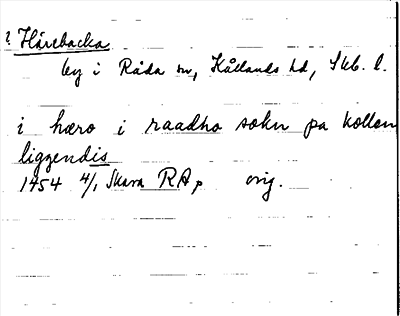 ? Hårebacka
by i Råda sn, Kållands hd, Skb. l.
i hæro i raadho sokn pa kollan
liggendis
1454 4/1 Skara RAp orig.